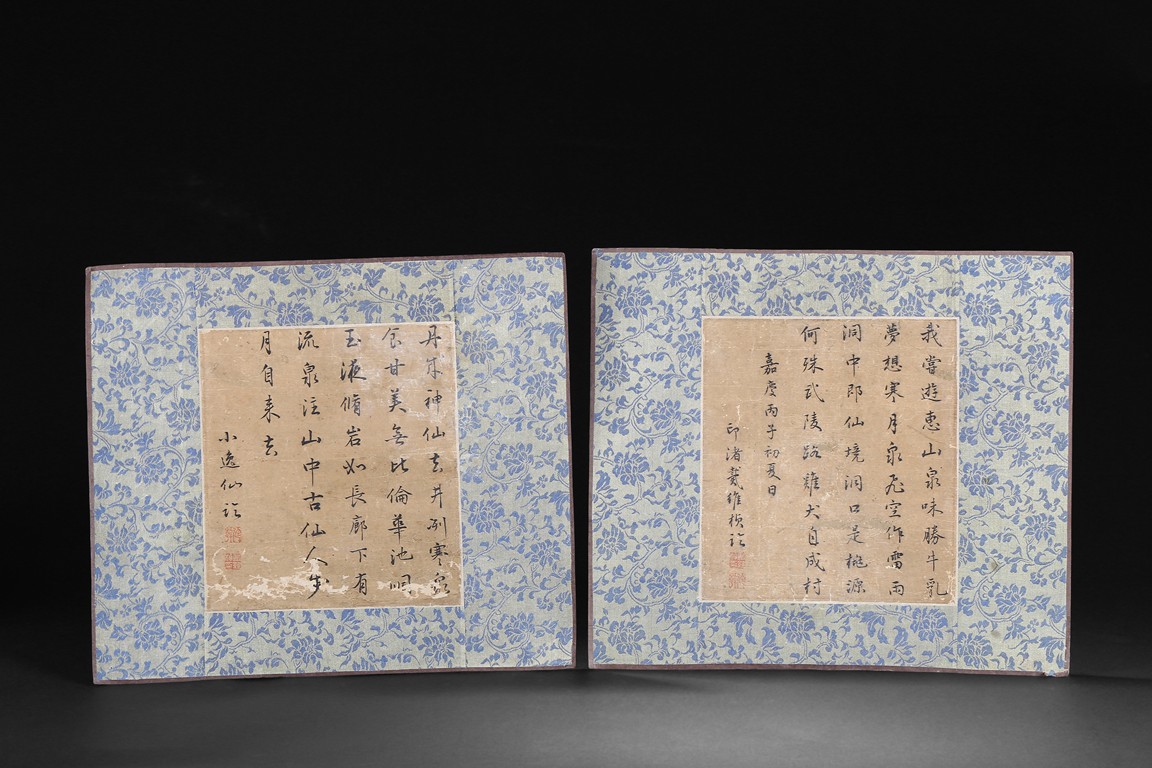 我嘗遊惠山泉味勝牛乳
夢想寒月泉飛空作雷雨
洞中即仙境洞口是桃源
何殊武陵路雞犬自成村
嘉慶丙子初夏日
印渚戴維楨識
丹成神仙去井冽寒泉
食甘美無比倫華池咽
玉液脩岩如長廊下有
流泉注山中古仙人步
月自來去
小逸仙識